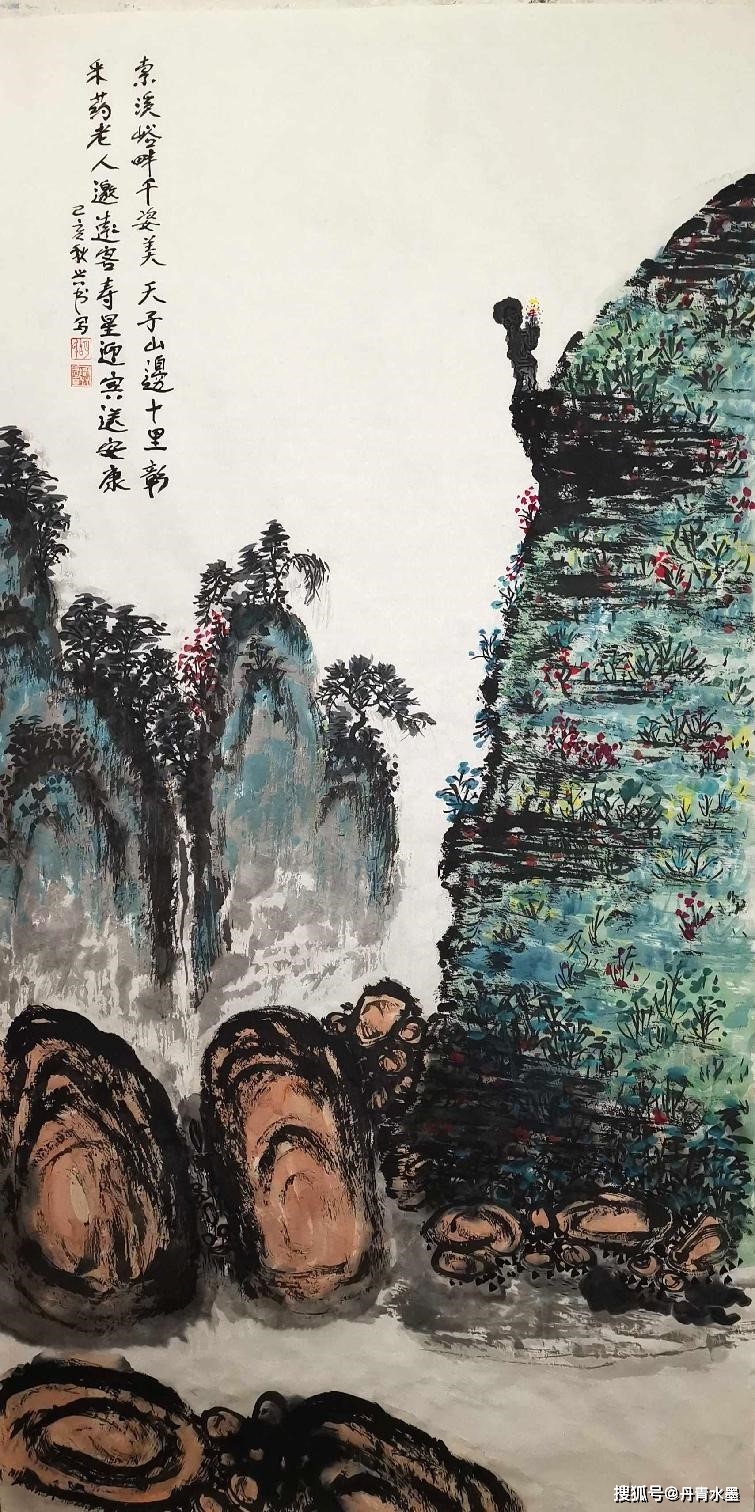 索溪峪畔千姿美 天子山邊十里彰
采药老人邀遠客寿星迎宾送安康
己亥秋
搜狐号@丹青水墨